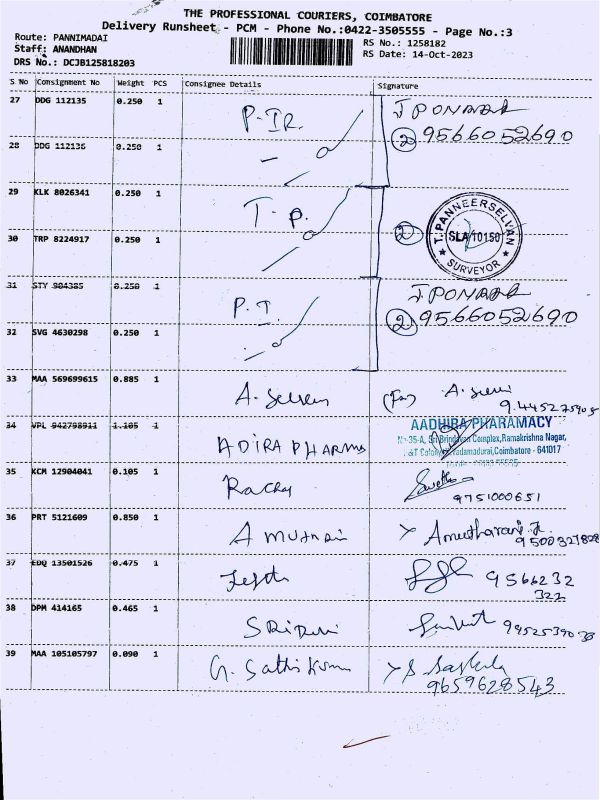 THE PROFESSIONAL COURIERS, COIMBATORE
Delivery Runsheet - PCM - Phone No.:0422-3505555 - Page No.:3
Route: PANNIMADAI
Staff: ANANDHAN
DRS No.: DCJB125818203
RS No.: 1258182
RS Date: 14-Oct-2023
S No Consignment No Weight PCS Consignee Details Signature
27 DDG 112135 0.250 1 P-IR.
9566052690
28 DDG 112136 0.250 1
29 KLK 8026341 0.250 1 T.P.
T. PANNEERSELVAN
SLA/10150
SURVEYOR
30 TRP 8224917 0.250 1
31 STY 984385 0.250 1 P.T.
9566052690
32 SVG 4630298 0.250 1
33 MAA 569699615 0.885 1 A.
34 VPL 942798911 1.105 1 ADIRA PHARMA
AADHIRA PHARAMACY
Complex, Ramakrishna Nagar,
Vadamadurai, Coimbatore - 641017
35 KCM 12904041 0.105 1
9751000651
36 PRT 5121609 0.850 1
37 EDQ 13501526 0.475 1
9566232
322
38 DPM 414165 0.465 1
39 MAA 105105797 0.090 1 G. Sathi Kumar
9659628543